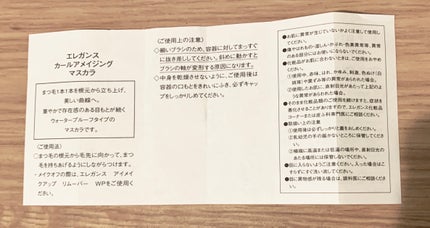 エレガンス
カールアメイジング
マスカラ
まつ毛1本1本を根元から立ち上げ、
美しい曲線へ。
華やかで存在感のある目もとが続く
ウォータープルーフタイプの
マスカラです。
〈ご使用法〉
○まつ毛の根元から毛先に向かって、まつ
毛を持ちあげるようにしながらつけます。
・メイクオフの際は、エレガンス アイメイ
クアップ リムーバー WPをご使用く
ださい。
〈ご使用上の注意〉
○細いブラシのため、容器に対してまっすぐ
に抜き差ししてください。斜めに動かすと
ブラシの軸が変形する原因になります。
○中身を乾燥させないように、ご使用後は
容器の口もとをきれいにふき、必ずキャッ
プをしっかりしめてください。
●お肌に異常が生じていないかよく注意して使用して
ください。
●傷やはれもの・湿しん・かぶれ・色素異常等、異常
のある部位にはお使いにならないでください。
●化粧品がお肌に合わないときは、使用をおやめ
ください。
①使用中、赤味、はれ、かゆみ、刺激、色ぬけ(白
斑等)や黒ずみ等の異常があらわれた場合。
②使用したお肌に、直射日光があたって上記のよう
な異常があらわれた場合。
●そのまま化粧品類のご使用を続けますと、症状を
悪化させることがありますので、エレガンス化粧品
コーナーまたは皮ふ科専門医等にご相談ください。
●取扱い上の注意
①使用後は必ずしっかり蓋をしめてください。
②乳幼児の手の届かないところに保管してくださ
い。
③極端に高温または低温の場所や、直射日光の
あたる場所には保管しないでください。
●目に入らないようご注意ください。入った場合は
すぐに洗い流してください。
●目に異物感が残る場合は、眼科医にご相談くださ
い。